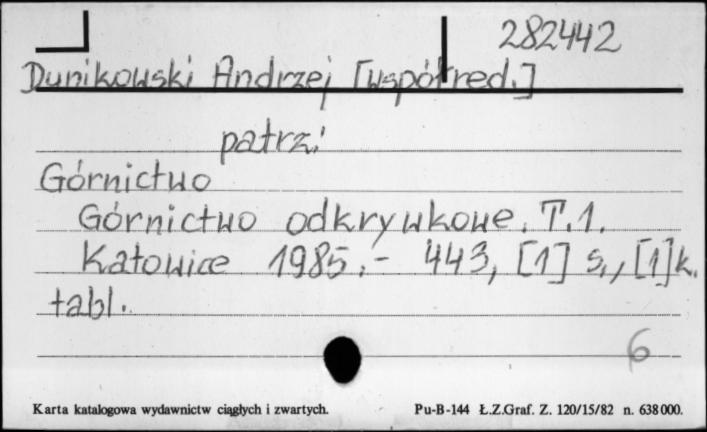 282442
Dunikowski Andrzej [współred.]
patrz:
Górnictwo
Górnictwo odkrywkowe. T.1.
Katowice 1985.- 443, [1] s., [1]k.
tabl.
6
Karta katalogowa wydawnictw ciągłych i zwartych. Pu-B-144 Ł.Z.Graf. Z. 120/15/82 n. 638000.